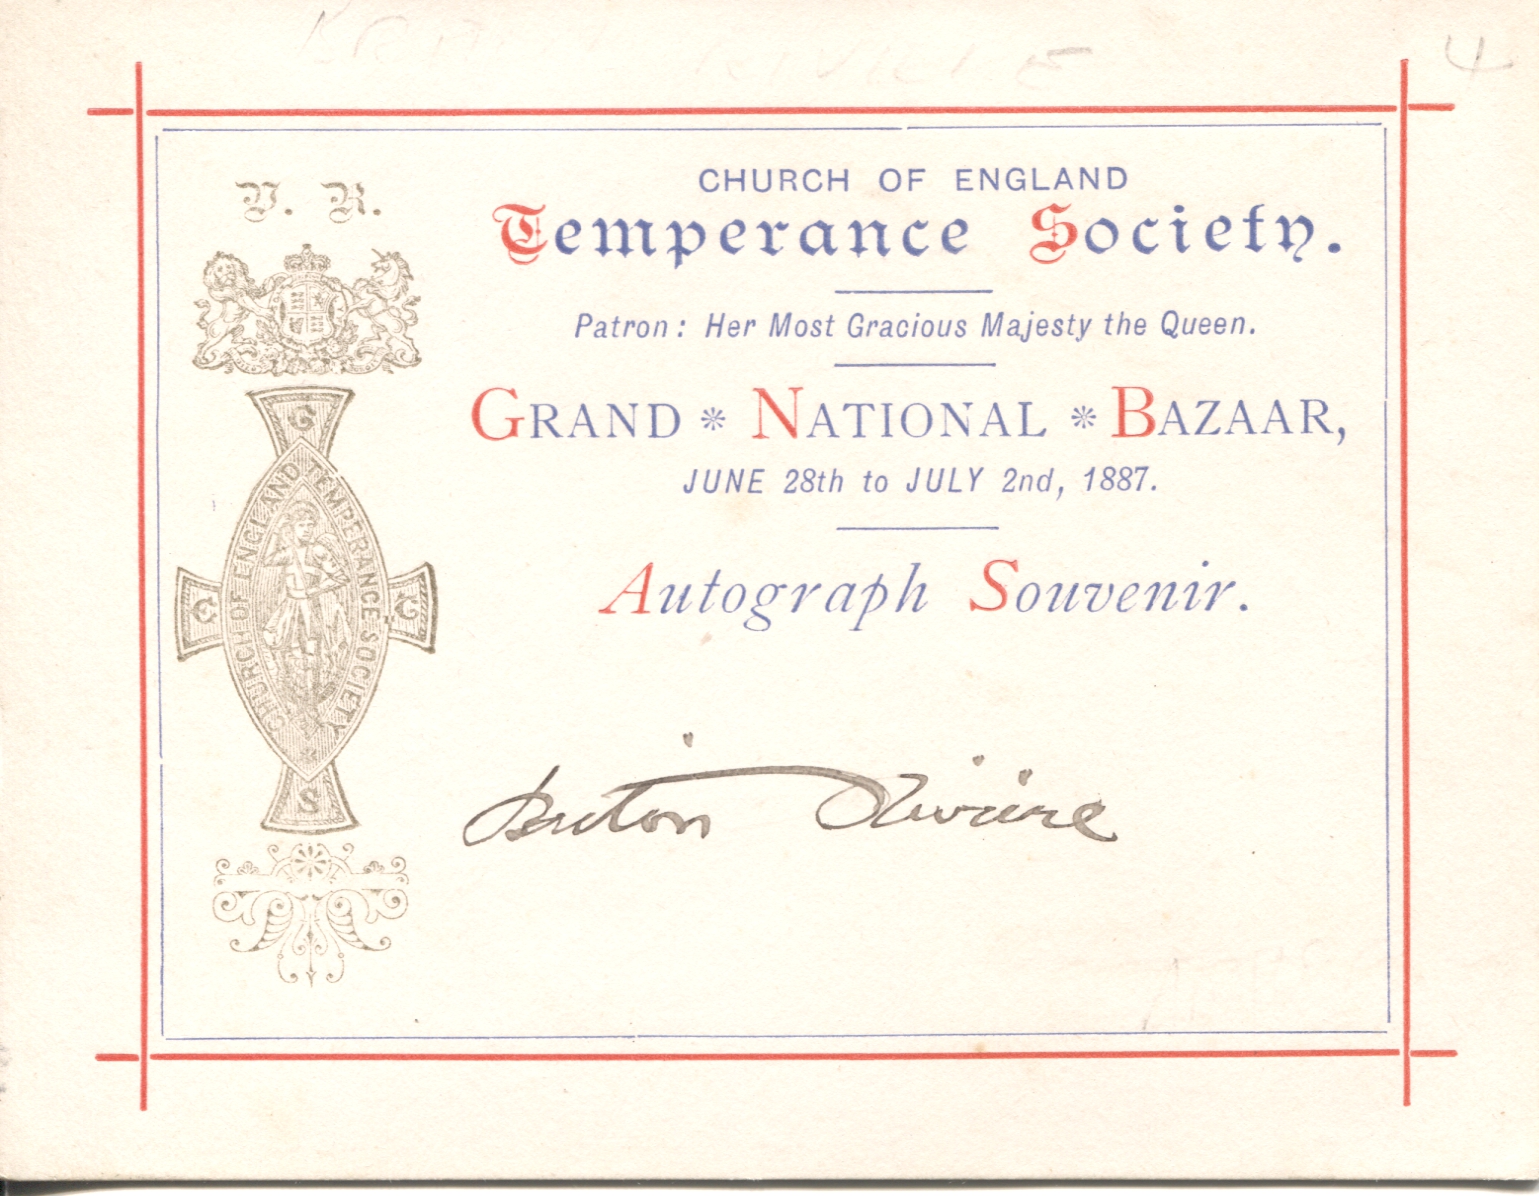 4
V. R.
CHURCH OF ENGLAND
Temperance Society.
Patron: Her Most Gracious Majesty the Queen.
GRAND * NATIONAL * BAZAAR,
JUNE 28th to JULY 2nd, 1887.
Autograph Souvenir.
C
CHURCH OF ENGLAND TEMPERANCE SOCIETY
E
T
S
Briton Riviere